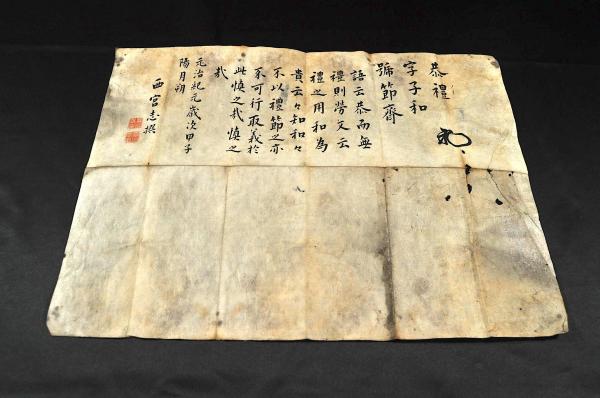 恭禮
字子和
號節齋
語云恭而無
禮則勞又云
禮之用和為
貴云々知和々
不以禮節之亦
不可行取義於
此慎之哉慎之
哉
元治紀元歳次甲子
陽月朔
西宮志撰